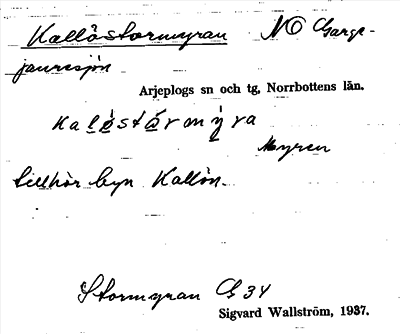 Kallöstormyran NO Garge-
jauresjön
Arjeplogs sn och tg, Norrbottens län.
kaløstórmýra
Myren
tillhör byn Kallön.
Stormyran G 34
Sigvard Wallström, 1937.